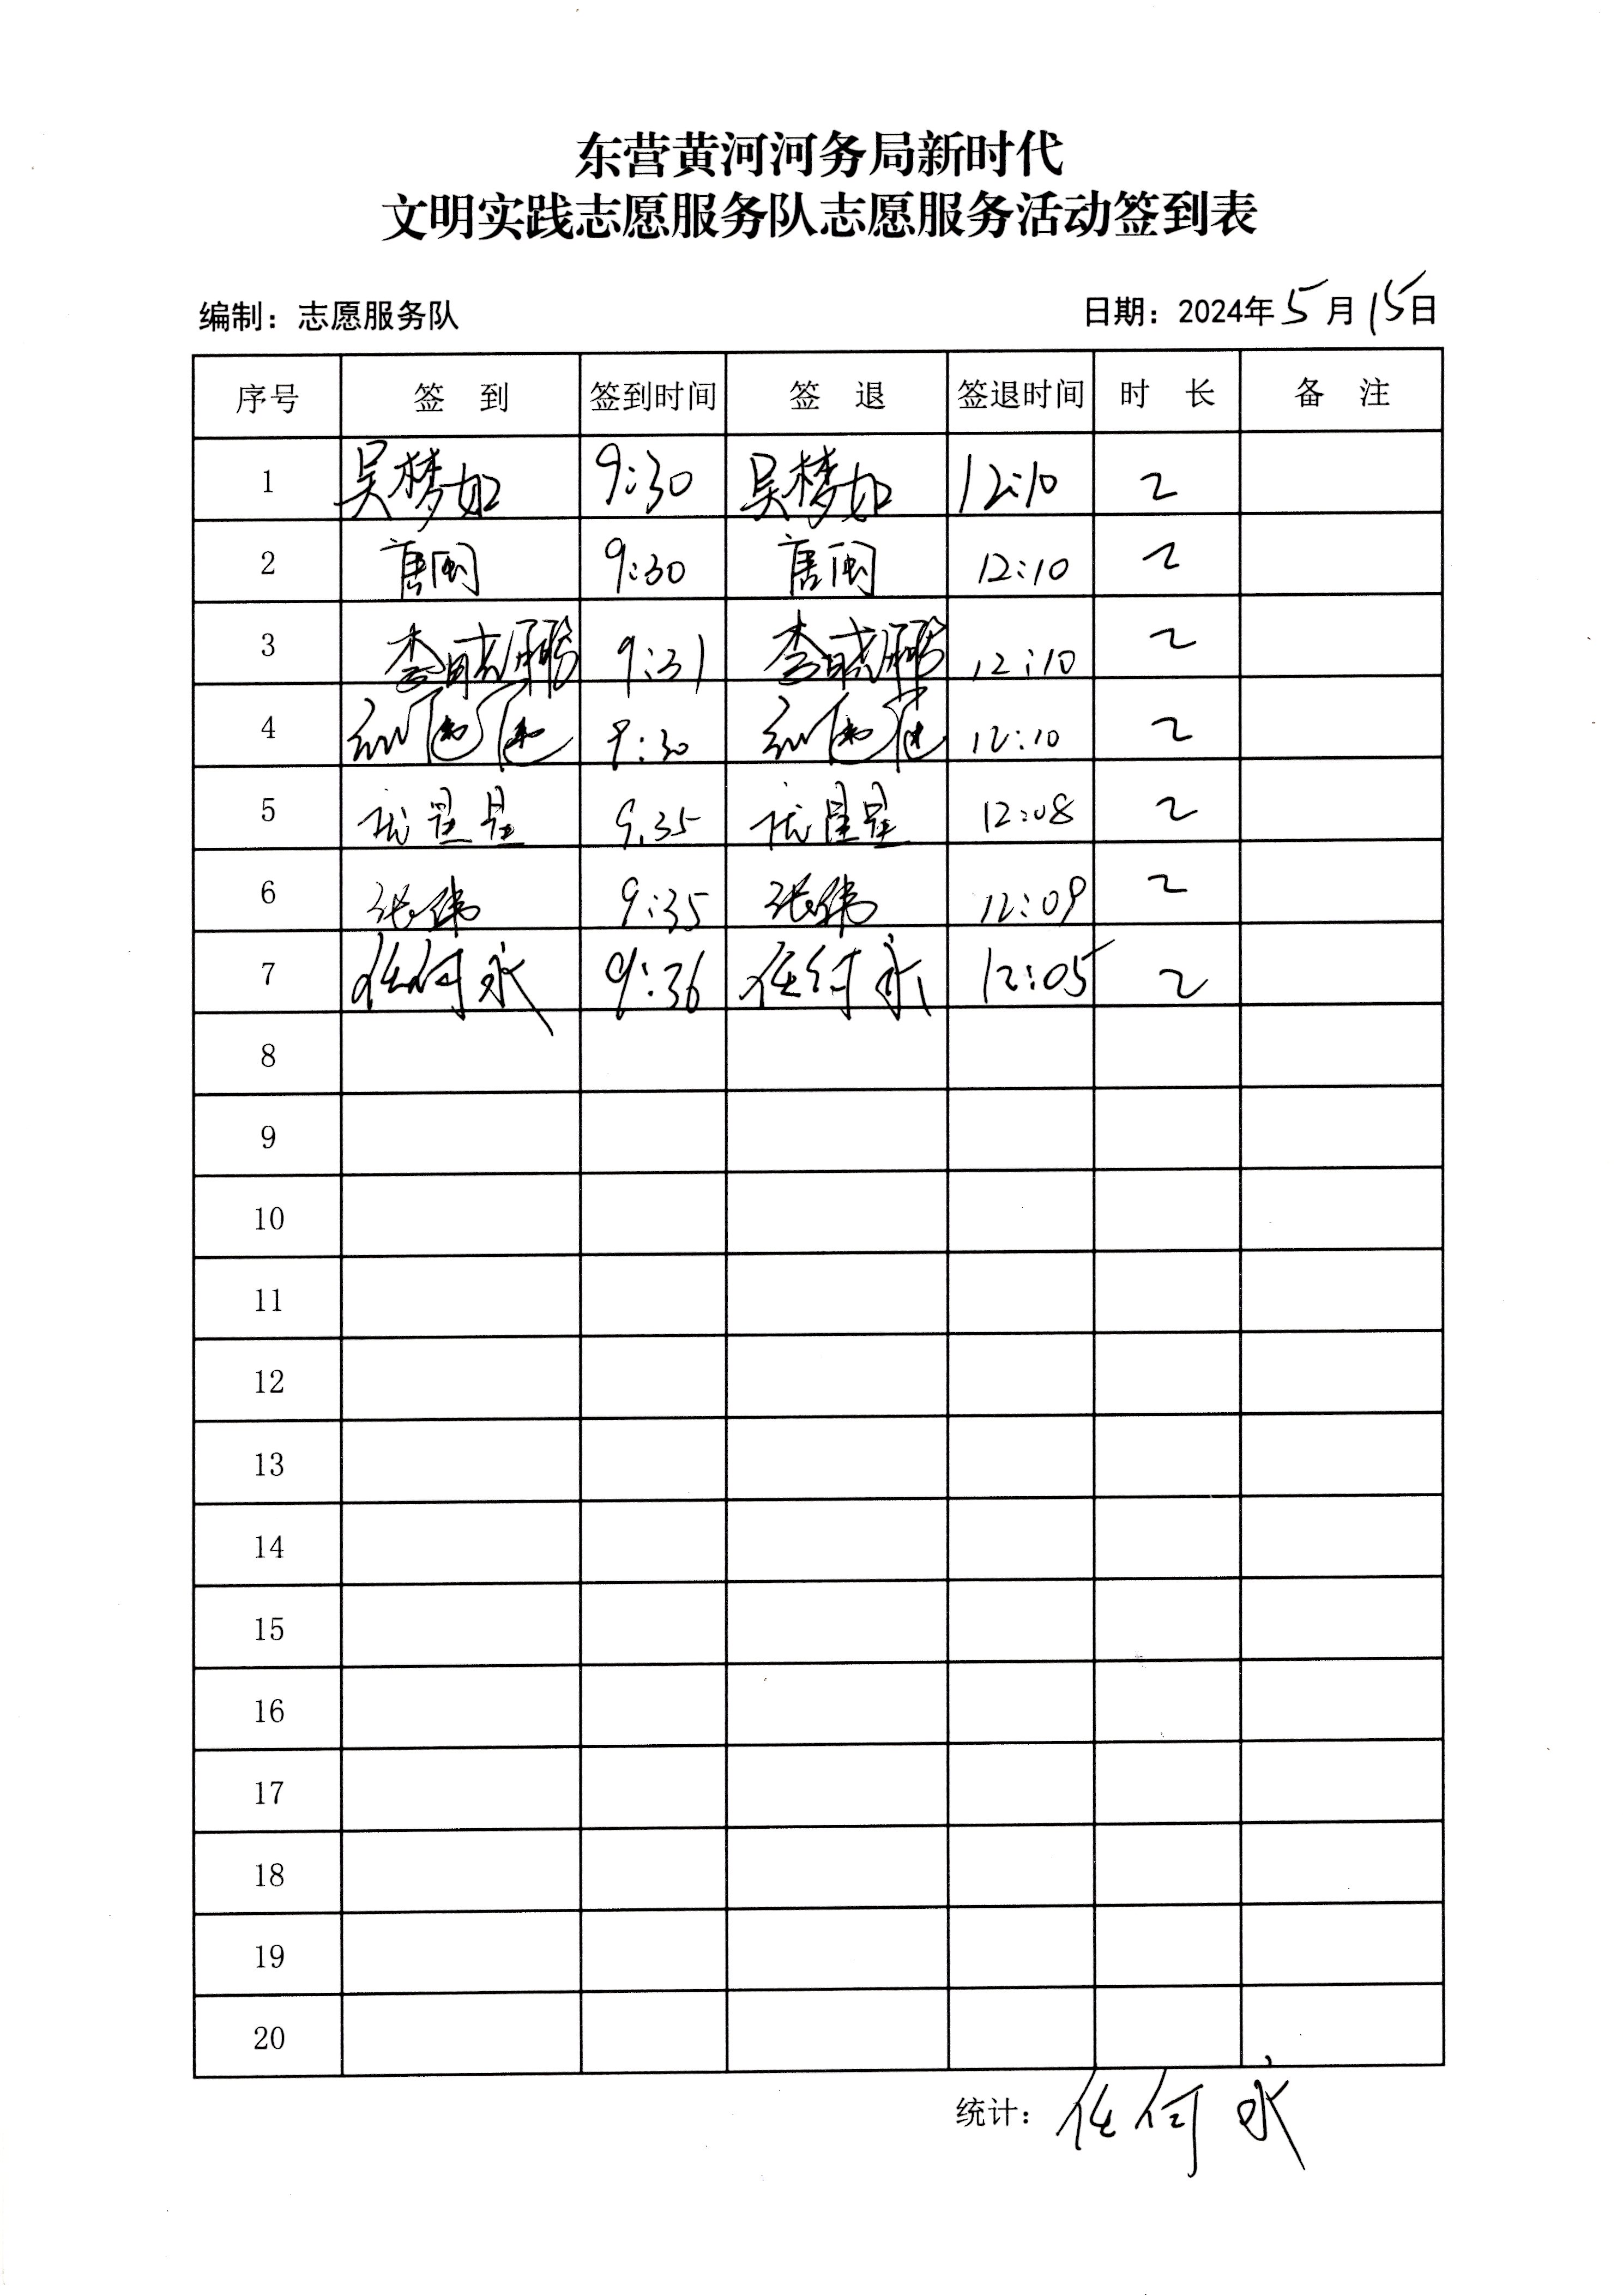 东营黄河河务局新时代
文明实践志愿服务队志愿服务活动签到表
编制：志愿服务队 日期：2024年5月15日
序号 签到 签到时间 签退 签退时间 时长 备注
1 吴梦如 9:30 吴梦如 12:10 2
2 唐闽 9:30 唐闽 12:10 2
3 李晓鹏 9:31 李晓鹏 12:10 2
4 9:30 12:10 2
5 星星 9:35 星星 12:08 2
6 张伟 9:35 张伟 12:09 2
7 任何永 9:36 任何永 12:05 2
8
9
10
11
12
13
14
15
16
17
18
19
20
统计：任何永